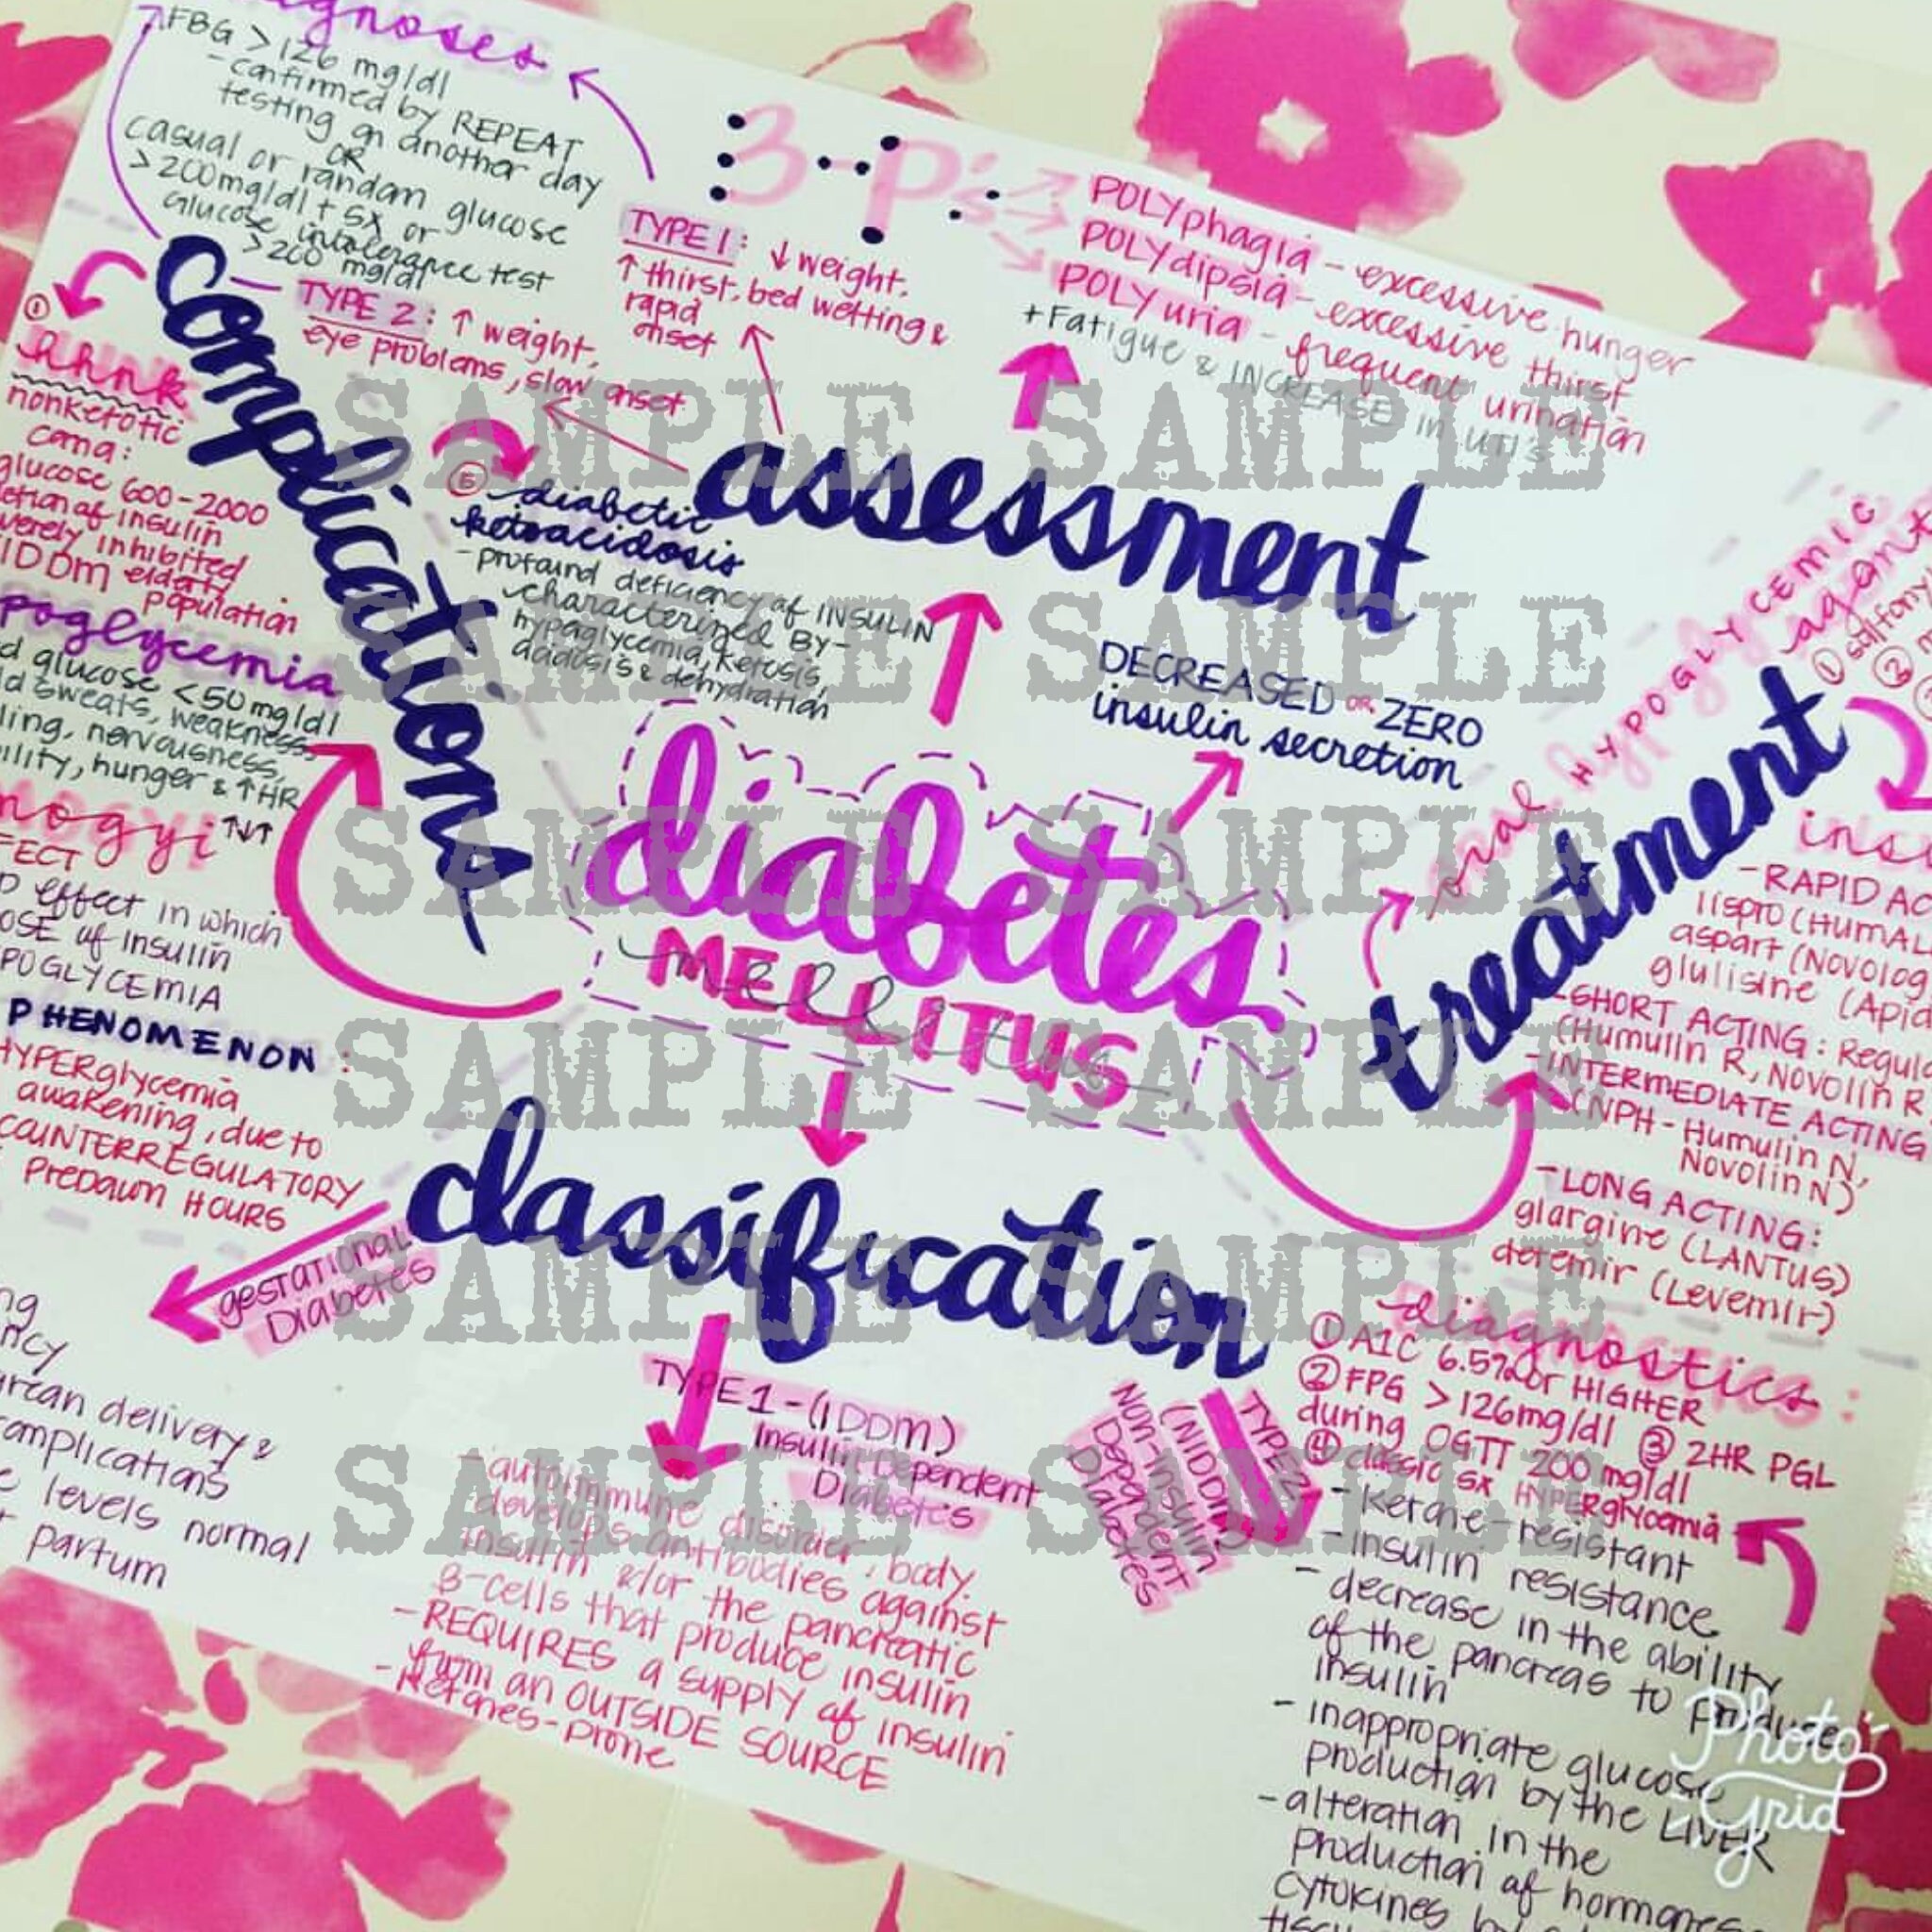 FBG > 126 mg/dl
- confirmed by REPEAT
testing on another day
OR
casual or random glucose
> 200 mg/dl + sx or
Glucose intolerance test
> 200 mg/dl
3-P's
POLYphagia - excessive hunger
POLYdipsia - excessive thirst
POLYuria - frequent urination
+Fatigue & INCREASE in UTI's
TYPE 1: ↓ weight,
↑ thirst, bed wetting &
rapid
onset
TYPE 2: ↑ weight,
eye problems, slow onset
assessment
complications
①
hhnk
nonketotic
coma:
glucose 600-2000
of insulin
inhibited
elderly
population
⑤ diabetic
ketoacidosis
- profound deficiency of INSULIN
characterized By-
hyperglycemia, ketosis,
acidosis & dehydration
glucose <50 mg/dl
sweats, weakness,
nervousness,
hunger & ↑HR
↑↓↑
effect in which
of insulin
PHENOMENON:
HYPERglycemia
awakening, due to
COUNTERREGULATORY
Predawn HOURS
DECREASED OR ZERO
insulin secretion
diabetes
MELLITUS
mellitus
treatment
oral HYPOGLYCEMIC
agent
①
②
- RAPID
lispro
aspart (Novolog
glulisine
- SHORT ACTING:
(Humulin R, Novolin R
- INTERMEDIATE ACTING
(NPH - Humulin N,
Novolin N)
- LONG ACTING:
glargine (LANTUS)
detemir (Levemir)
classification
gestational
Diabetes
delivery &
complications
levels normal
partum
TYPE 1 - (IDDM)
Insulin Dependent
Diabetes
- autoimmune disorder, body
develops antibodies against
insulin &/or the pancreatic
B-cells that produce insulin
- REQUIRES a supply of insulin
from an OUTSIDE SOURCE
- Ketones-prone
TYPE 2
(NIDDM)
Non-insulin
Dependent
Diabetes
diagnostics:
① A1C 6.5% or HIGHER
② FPG > 126mg/dl ③ 2HR PGL
during OGTT 200 mg/dl
④ classic sx HYPERglycemia
- Ketone-resistant
- insulin resistance
- decrease in the ability
of the pancreas to produce
insulin
- inappropriate glucose
production by the LIVER
- alteration in the
production of hormones
cytokines
SAMPLE SAMPLE
SAMPLE SAMPLE
SAMPLE SAMPLE
SAMPLE SAMPLE
SAMPLE SAMPLE
SAMPLE SAMPLE
Photo
Grid